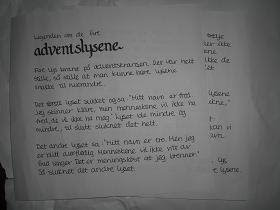 Legenden om de fire
adventslysene
Fire lys brant på adventskransen. Det var helt
stille, så stille at man kunne høre lysene
snakke til hverandre.
Det første lyset sukket og sa: "Mitt navn er fred.
Jeg skinner klart, men menneskene vil ikke ha
fred, de vil ikke ha meg." Lyset ble mindre og
mindre, til slutt sluknet det helt.
Det andre lyset sa: "Mitt navn er tro. Men jeg
er blitt overflødig. Menneskene vil ikke vite av
Gud lenger. Det er meningsløst at jeg brenner."
Så sluknet det andre lyset.
er ikke
ikke
de
et
lysene
kan vi
lys
lysene.